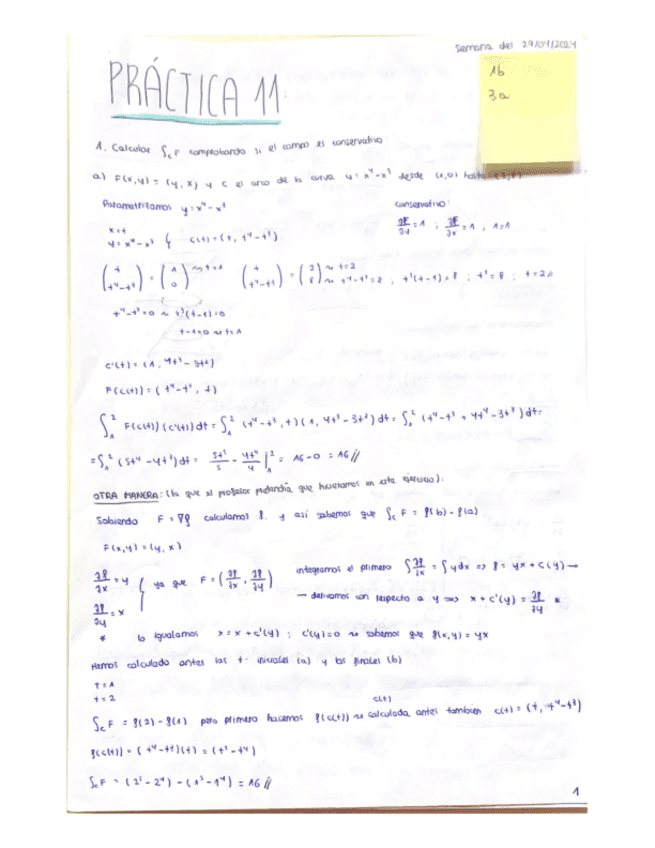 Semana del 29/04/2024
PRÁCTICA 11
1b
3a
1. Calcular ∫c F comprobando si el campo es conservativo
a) F(x,y) = (y, x) y C el arco de la curva y = x⁴-x³ desde (1,0) hasta (2,8)
Parametrizamos y = x⁴-x³
conservativo:
x=t
y = x⁴-x³ } c(t) = (t, t⁴-t³)
∂F/∂y = 1 ; ∂F/∂x = 1 , 1=1
(t, t⁴-t³) = (1, 0) ~> t=1 (t, t⁴-t³) = (2, 8) ~> t=2 ~> t⁴-t³=8 , t³(t-1)=8 ; t³=8 ; t=2//
t⁴-t³=0 ~> t³(t-1)=0
t-1=0 ~> t=1
c'(t) = (1, 4t³-3t²)
F(c(t)) = (t⁴-t³, t)
∫₁² F(c(t))(c'(t))dt = ∫₁² (t⁴-t³, t)(1, 4t³-3t²)dt = ∫₁² (t⁴-t³ + 4t⁴-3t³)dt =
= ∫₁² (5t⁴-4t³)dt = 5t⁵/5 - 4t⁴/4 |₁² = 16-0 = 16//
OTRA MANERA: (la que el profesor pretendía que hiciéramos en este ejercicio):
Sabiendo F = ∇f calculamos f. y así sabemos que ∫c F = f(b) - f(a)
F(x,y) = (y, x)
∂f/∂x = y
∂f/∂y = x } ya que F = (∂f/∂x, ∂f/∂y)
integramos el primero ∫∂f/∂x = ∫y dx => f = yx + c(y) →
→ derivamos con respecto a y => x + c'(y) = ∂f/∂y *
* lo igualamos x = x + c'(y) ; c'(y)=0 ~> sabemos que f(x,y) = yx
Hemos calculado antes las t iniciales (a) y las finales (b)
t=1
t=2
c(t)
∫c F = f(2) - f(1) pero primero hacemos f(c(t)) ~> calculada antes tambien c(t) = (t, t⁴-t³)
f(c(t)) = (t⁴-t³)(t) = (t⁵-t⁴)
∫c F = (2⁵-2⁴) - (1⁵-1⁴) = 16//
1